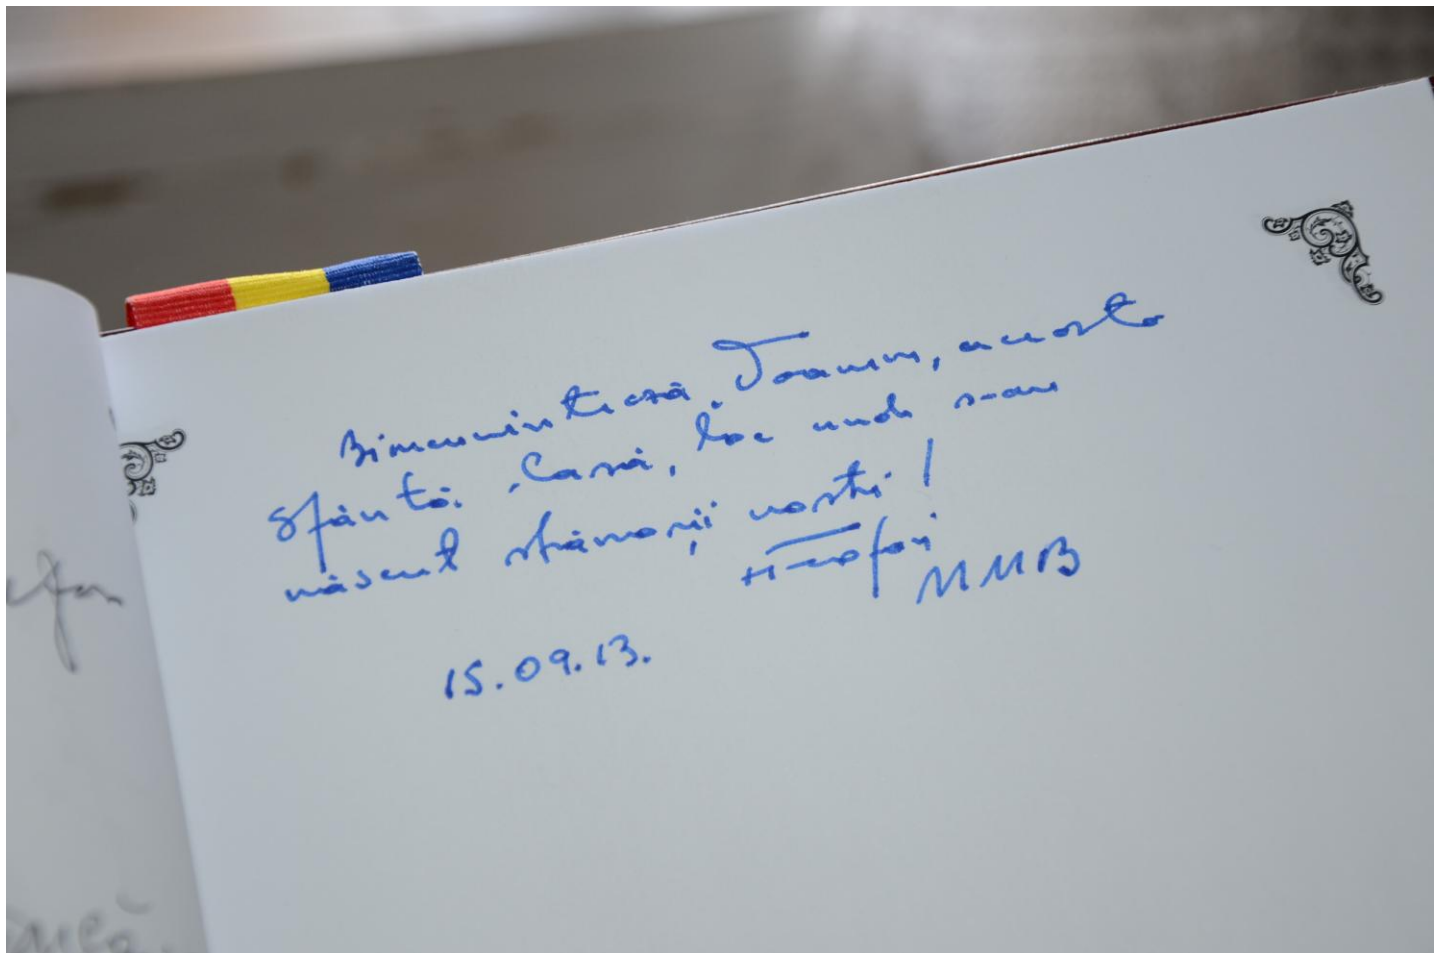 Binecuvintează, Doamne, aceasta
sfântă Casă, loc unde s-au
născut strămoșii noștri!
15.09.13.